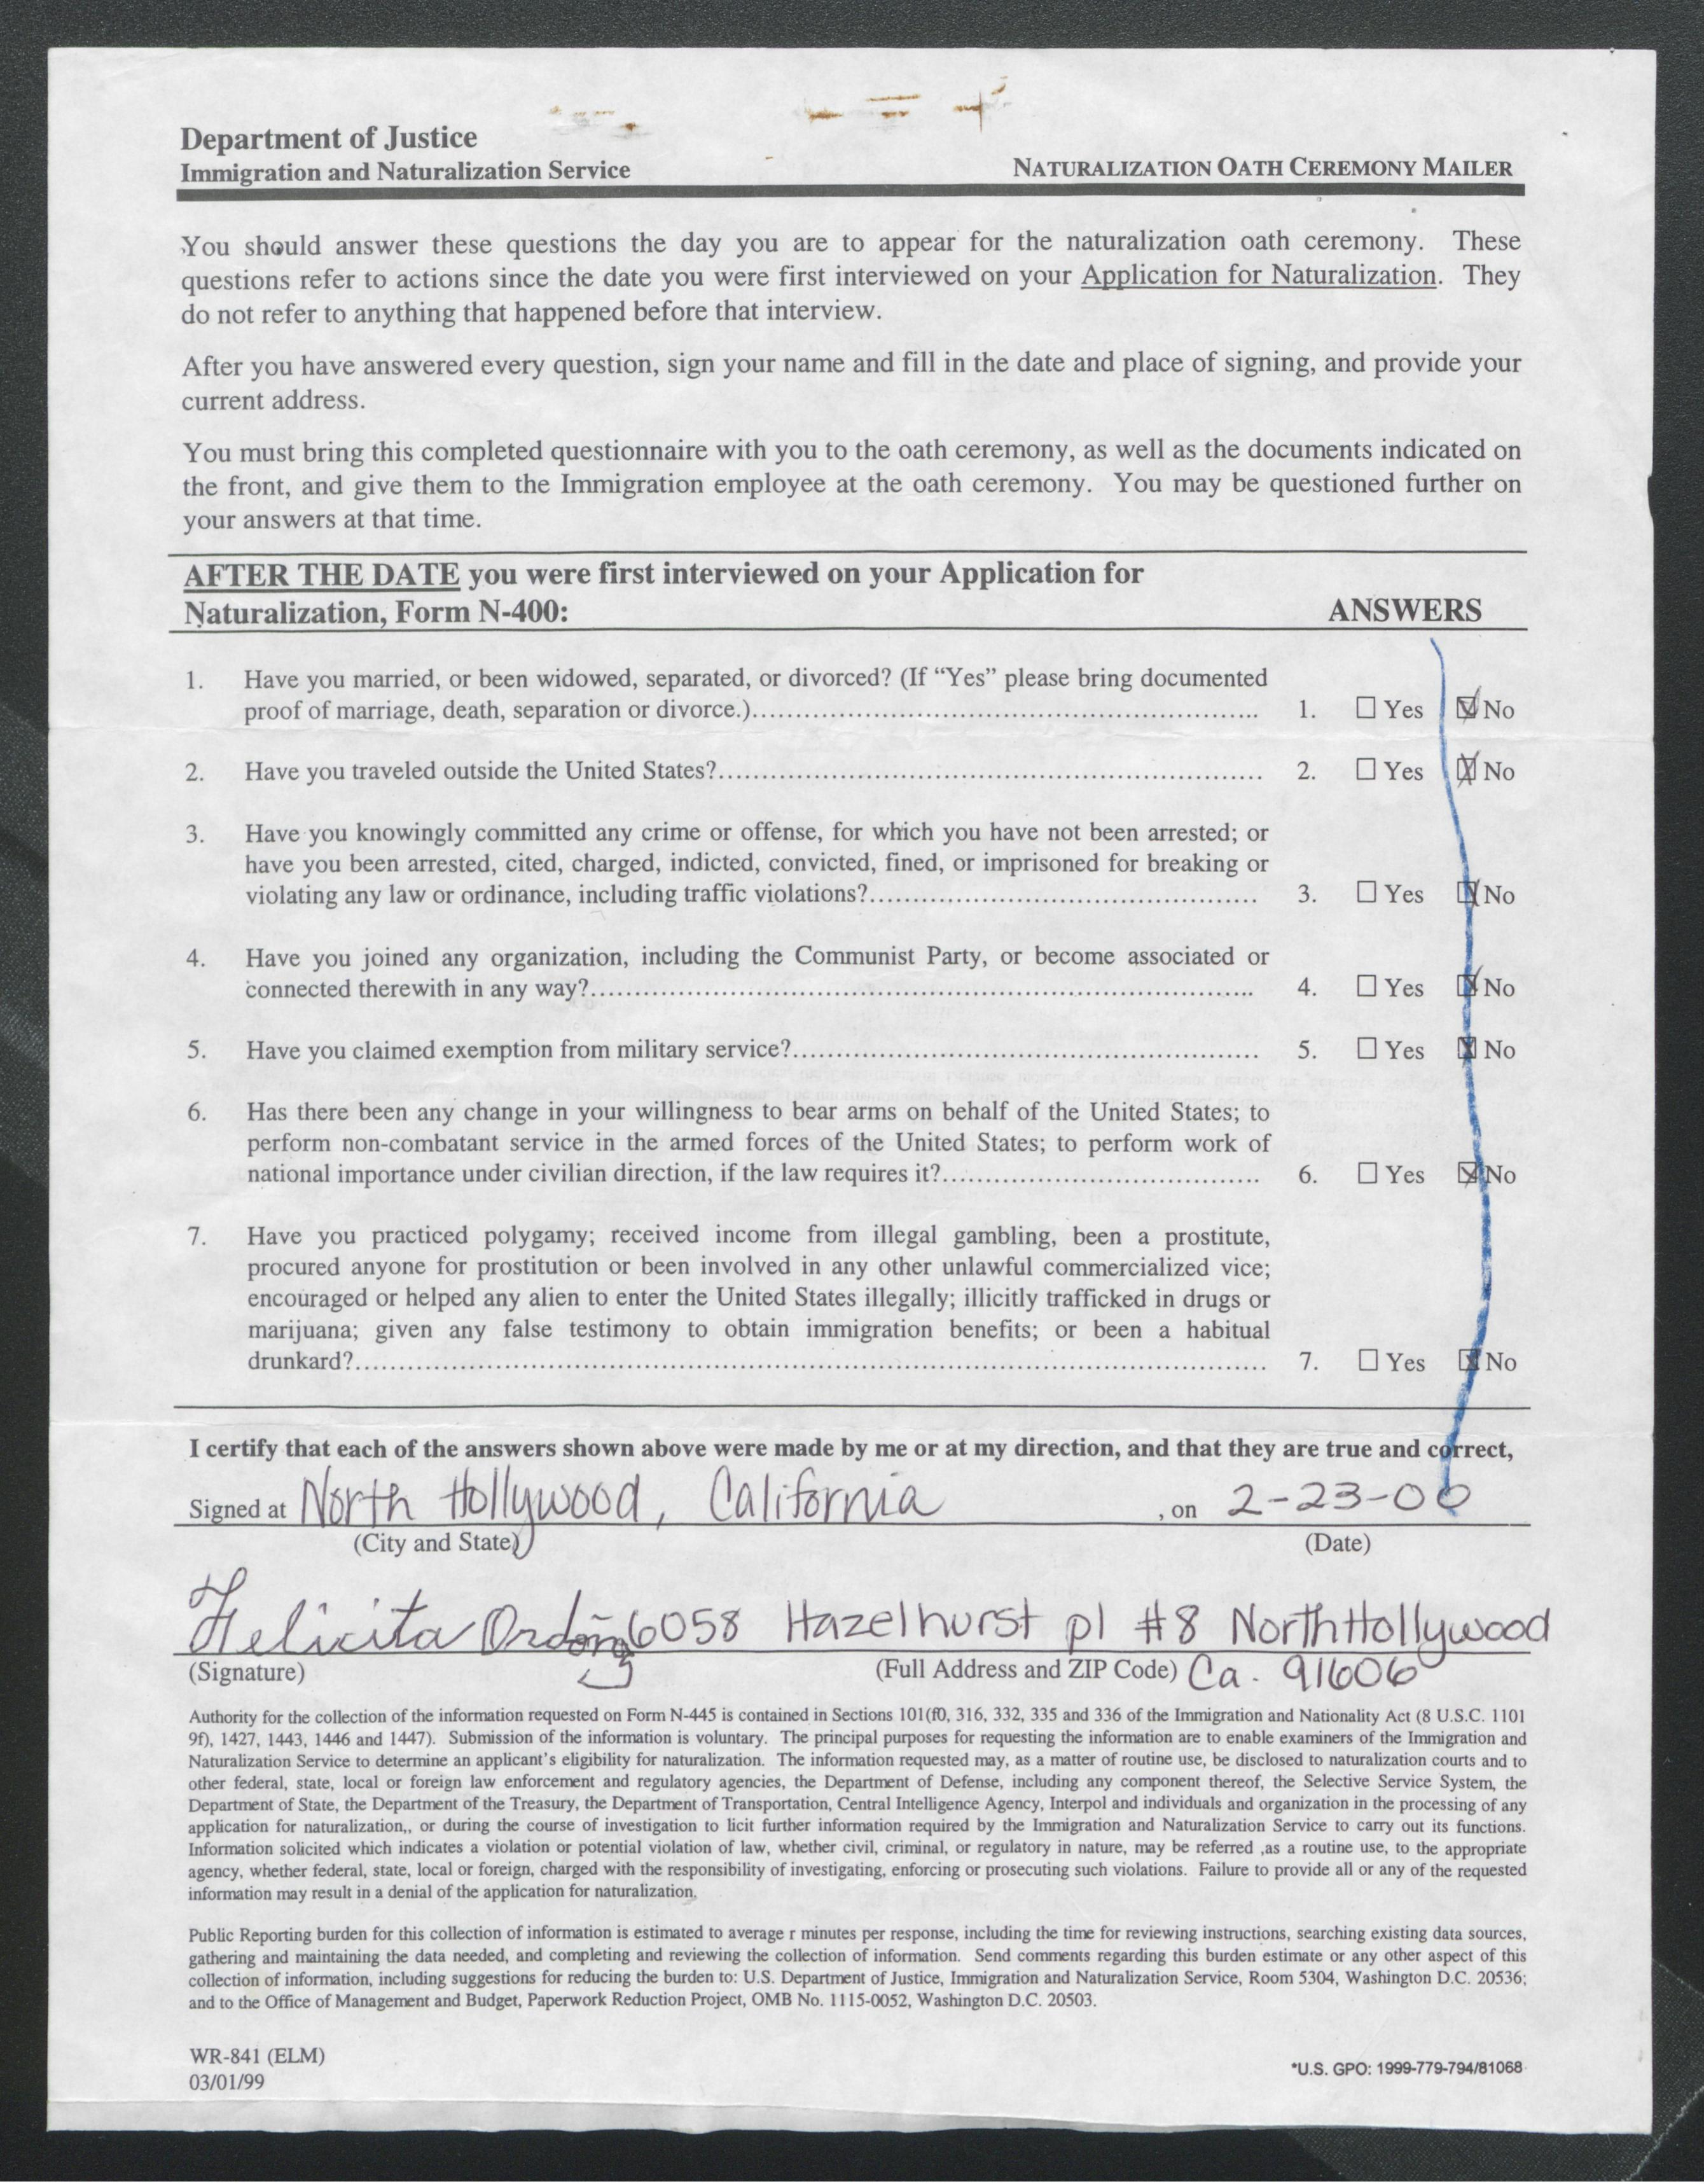 Department of Justice
Immigration and Naturalization Service NATURALIZATION OATH CEREMONY MAILER
You should answer these questions the day you are to appear for the naturalization oath ceremony. These
questions refer to actions since the date you were first interviewed on your Application for Naturalization. They
do not refer to anything that happened before that interview.
After you have answered every question, sign your name and fill in the date and place of signing, and provide your
current address.
You must bring this completed questionnaire with you to the oath ceremony, as well as the documents indicated on
the front, and give them to the Immigration employee at the oath ceremony. You may be questioned further on
your answers at that time.
AFTER THE DATE you were first interviewed on your Application for
Naturalization, Form N-400: ANSWERS
1. Have you married, or been widowed, separated, or divorced? (If “Yes” please bring documented
proof of marriage, death, separation or divorce.)............ 1. ☐ Yes ☒ No
2. Have you traveled outside the United States?............ 2. ☐ Yes ☒ No
3. Have you knowingly committed any crime or offense, for which you have not been arrested; or
have you been arrested, cited, charged, indicted, convicted, fined, or imprisoned for breaking or
violating any law or ordinance, including traffic violations?............ 3. ☐ Yes ☒ No
4. Have you joined any organization, including the Communist Party, or become associated or
connected therewith in any way?............ 4. ☐ Yes ☒ No
5. Have you claimed exemption from military service?............ 5. ☐ Yes ☒ No
6. Has there been any change in your willingness to bear arms on behalf of the United States; to
perform non-combatant service in the armed forces of the United States; to perform work of
national importance under civilian direction, if the law requires it?............ 6. ☐ Yes ☒ No
7. Have you practiced polygamy; received income from illegal gambling, been a prostitute,
procured anyone for prostitution or been involved in any other unlawful commercialized vice;
encouraged or helped any alien to enter the United States illegally; illicitly trafficked in drugs or
marijuana; given any false testimony to obtain immigration benefits; or been a habitual
drunkard?............ 7. ☐ Yes ☒ No
I certify that each of the answers shown above were made by me or at my direction, and that they are true and correct,
Signed at North Hollywood, California , on 2-23-00
(City and State) (Date)
Felicita 6058 Hazelhurst pl #8 North Hollywood
(Signature) (Full Address and ZIP Code) Ca. 91606
Authority for the collection of the information requested on Form N-445 is contained in Sections 101(f0, 316, 332, 335 and 336 of the Immigration and Nationality Act (8 U.S.C. 1101
9f), 1427, 1443, 1446 and 1447). Submission of the information is voluntary. The principal purposes for requesting the information are to enable examiners of the Immigration and
Naturalization Service to determine an applicant’s eligibility for naturalization. The information requested may, as a matter of routine use, be disclosed to naturalization courts and to
other federal, state, local or foreign law enforcement and regulatory agencies, the Department of Defense, including any component thereof, the Selective Service System, the
Department of State, the Department of the Treasury, the Department of Transportation, Central Intelligence Agency, Interpol and individuals and organization in the processing of any
application for naturalization,, or during the course of investigation to licit further information required by the Immigration and Naturalization Service to carry out its functions.
Information solicited which indicates a violation or potential violation of law, whether civil, criminal, or regulatory in nature, may be referred ,as a routine use, to the appropriate
agency, whether federal, state, local or foreign, charged with the responsibility of investigating, enforcing or prosecuting such violations. Failure to provide all or any of the requested
information may result in a denial of the application for naturalization.
Public Reporting burden for this collection of information is estimated to average r minutes per response, including the time for reviewing instructions, searching existing data sources,
gathering and maintaining the data needed, and completing and reviewing the collection of information. Send comments regarding this burden estimate or any other aspect of this
collection of information, including suggestions for reducing the burden to: U.S. Department of Justice, Immigration and Naturalization Service, Room 5304, Washington D.C. 20536;
and to the Office of Management and Budget, Paperwork Reduction Project, OMB No. 1115-0052, Washington D.C. 20503.
WR-841 (ELM)
03/01/99 *U.S. GPO: 1999-779-794/81068